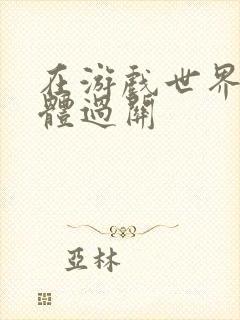 在游戲世界
體過關
亞林